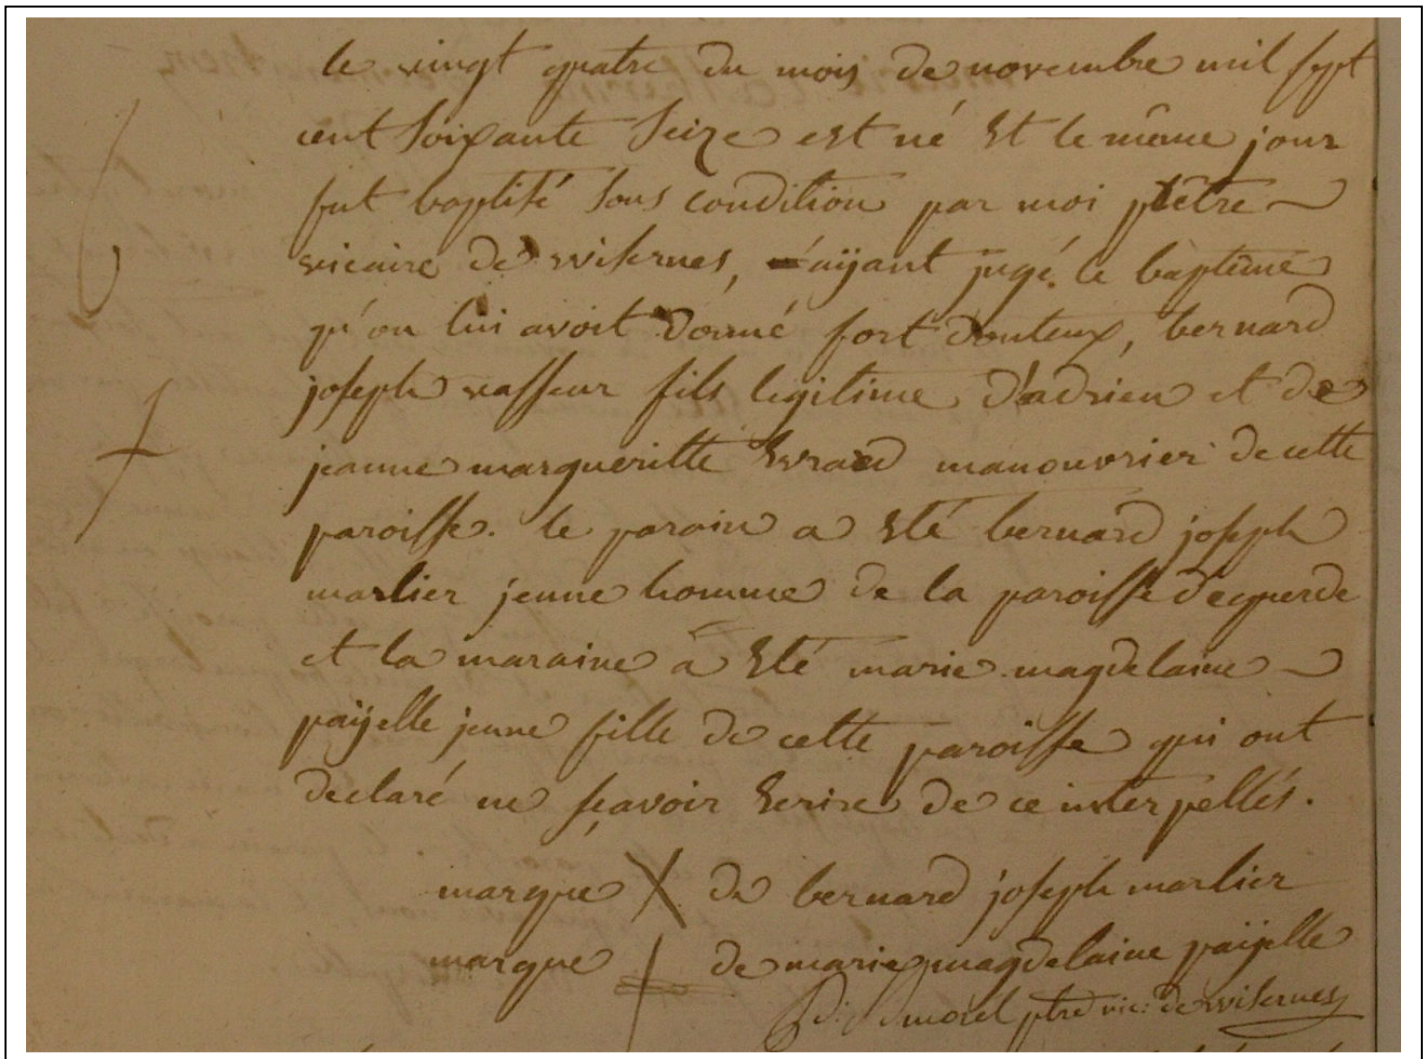 le vingt quatre du mois de novembre mil sept
cent soixante seize est né Et le même jour
fut baptisé sous condition par moi prêtre
vicaire de wisernes, ayant jugé le baptême
qu'on lui avoit donné fort douteux, bernard
joseph vasseur fils legitime d'adrien et de
jeanne margueritte Evrard manouvrier de cette
paroisse. le parain a Eté bernard joseph
marlier jeune homme de la paroisse d'ecquerde
et la maraine a Eté marie magdelaine
paÿelle jeune fille de cette paroisse qui ont
declaré ne sçavoir Ecrire de ce interpellés.
marque X de bernard joseph marlier
marque de marie magdelaine païelle
morel ptre vic: de wisernes